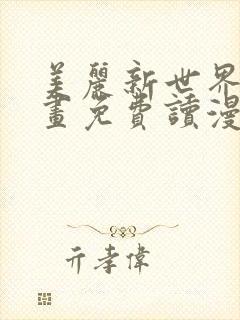 美麗新世界
畫免費讀漫
亓孝偉